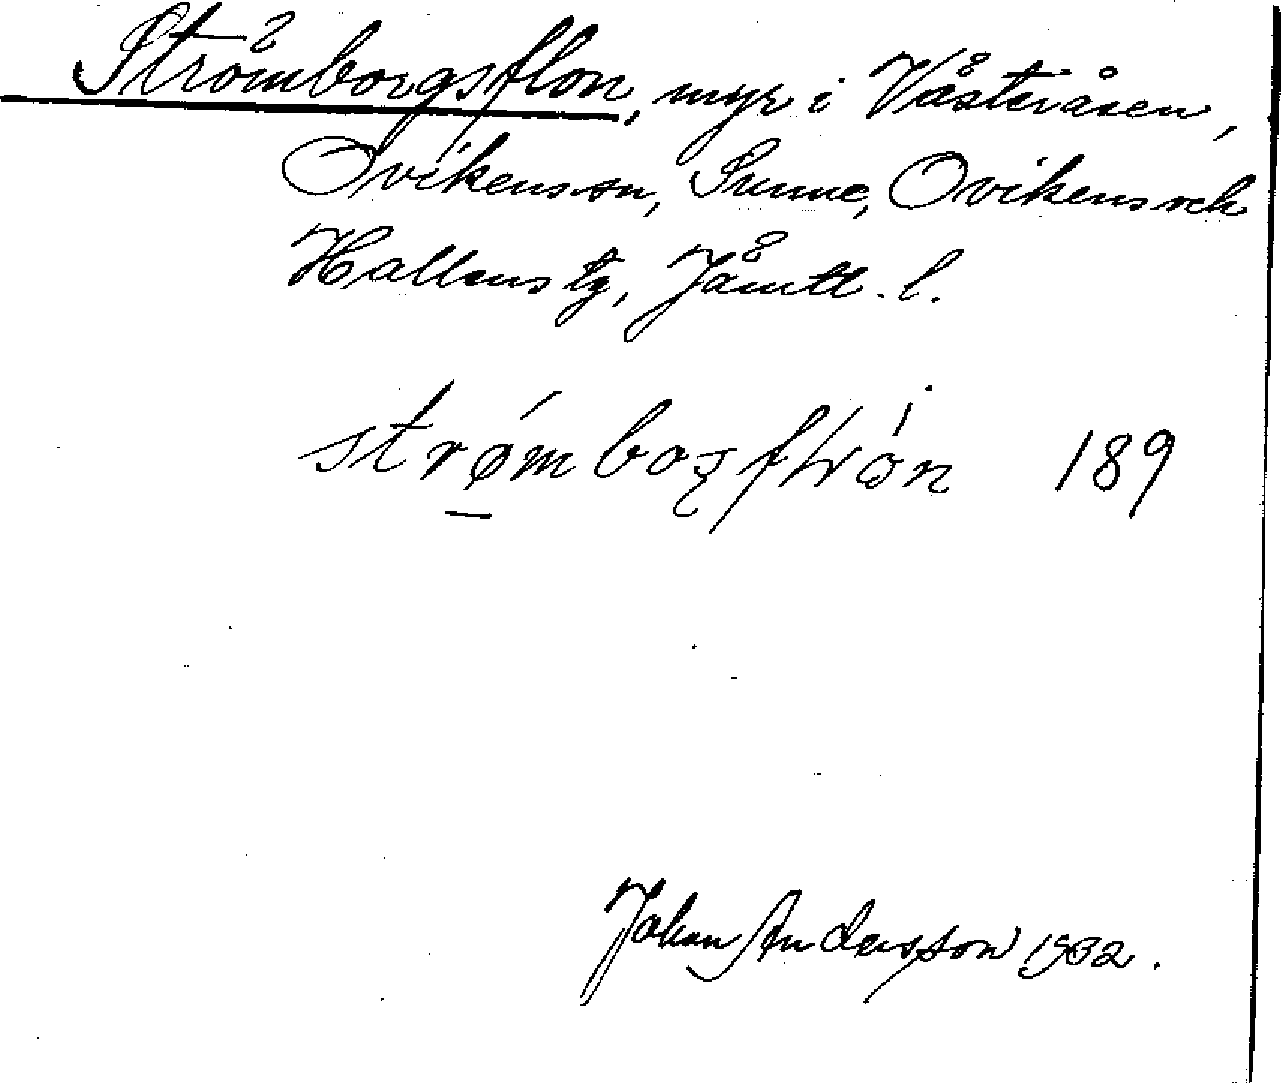 Strömborgsflon, myr i Västeråsen,
Ovikens sn, Sunne, Ovikens och
Hallens tg, Jämtl. l.
strømboʂflón 189
Johan Andersson 1932.